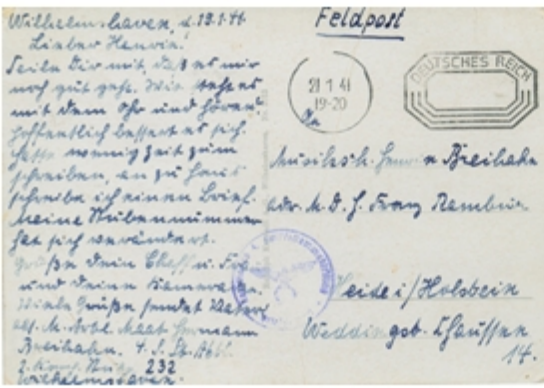 Wilhelmshaven, d. 19.1.41.
Lieber Henrin!
Teile Dir mit, daß es mir
noch gut geht. Wie steht es
mit dem Ohr und hören?
Hoffentlich bessert es sich.
Hatte wenig Zeit zum
schreiben, an zu Haus
schreibe ich einen Brief.
Meine Stubennummer
hat sich verändert.
Grüße dein Chef u.
und deine Kameraden.
Viele Grüße sendet
Maat Hermann
Breihahn. 4. S. St. Abtl.
2. Komp. Stube 232
Wilhelmshaven.
Feldpost
21 1 41
19-20
DEUTSCHES REICH
Breihahn
adr. M. D. H. Franz
Heide i/Holstein
Weddingst. Chaussee
14.